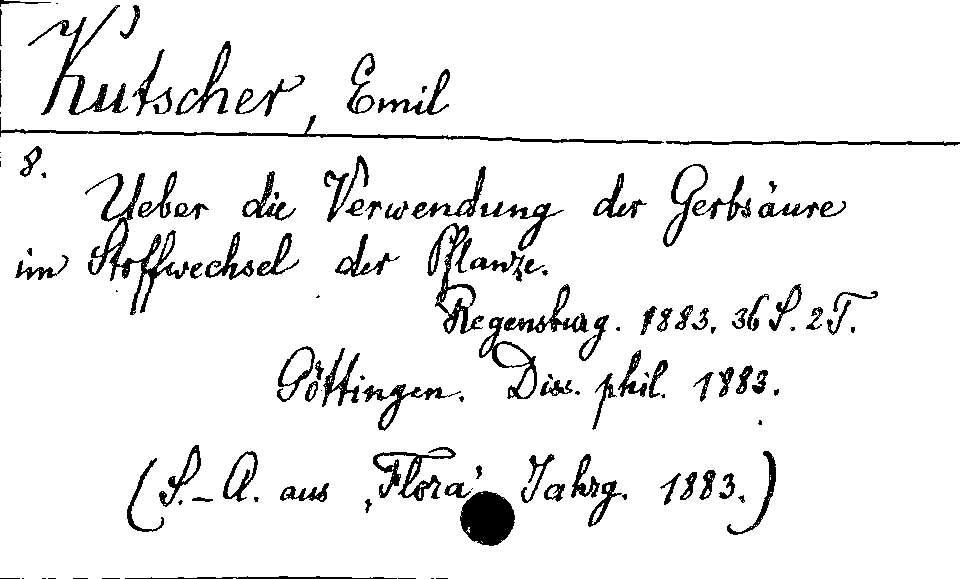 Kutscher, Emil
8.
Ueber die Verwendung der Gerbsäure
im Stoffwechsel der Pflanze.
Regensburg. 1883. 36 S. 2 T.
Göttingen. Diss. phil. 1883.
(S.-A. aus „Flora“ Jahrg. 1883.)